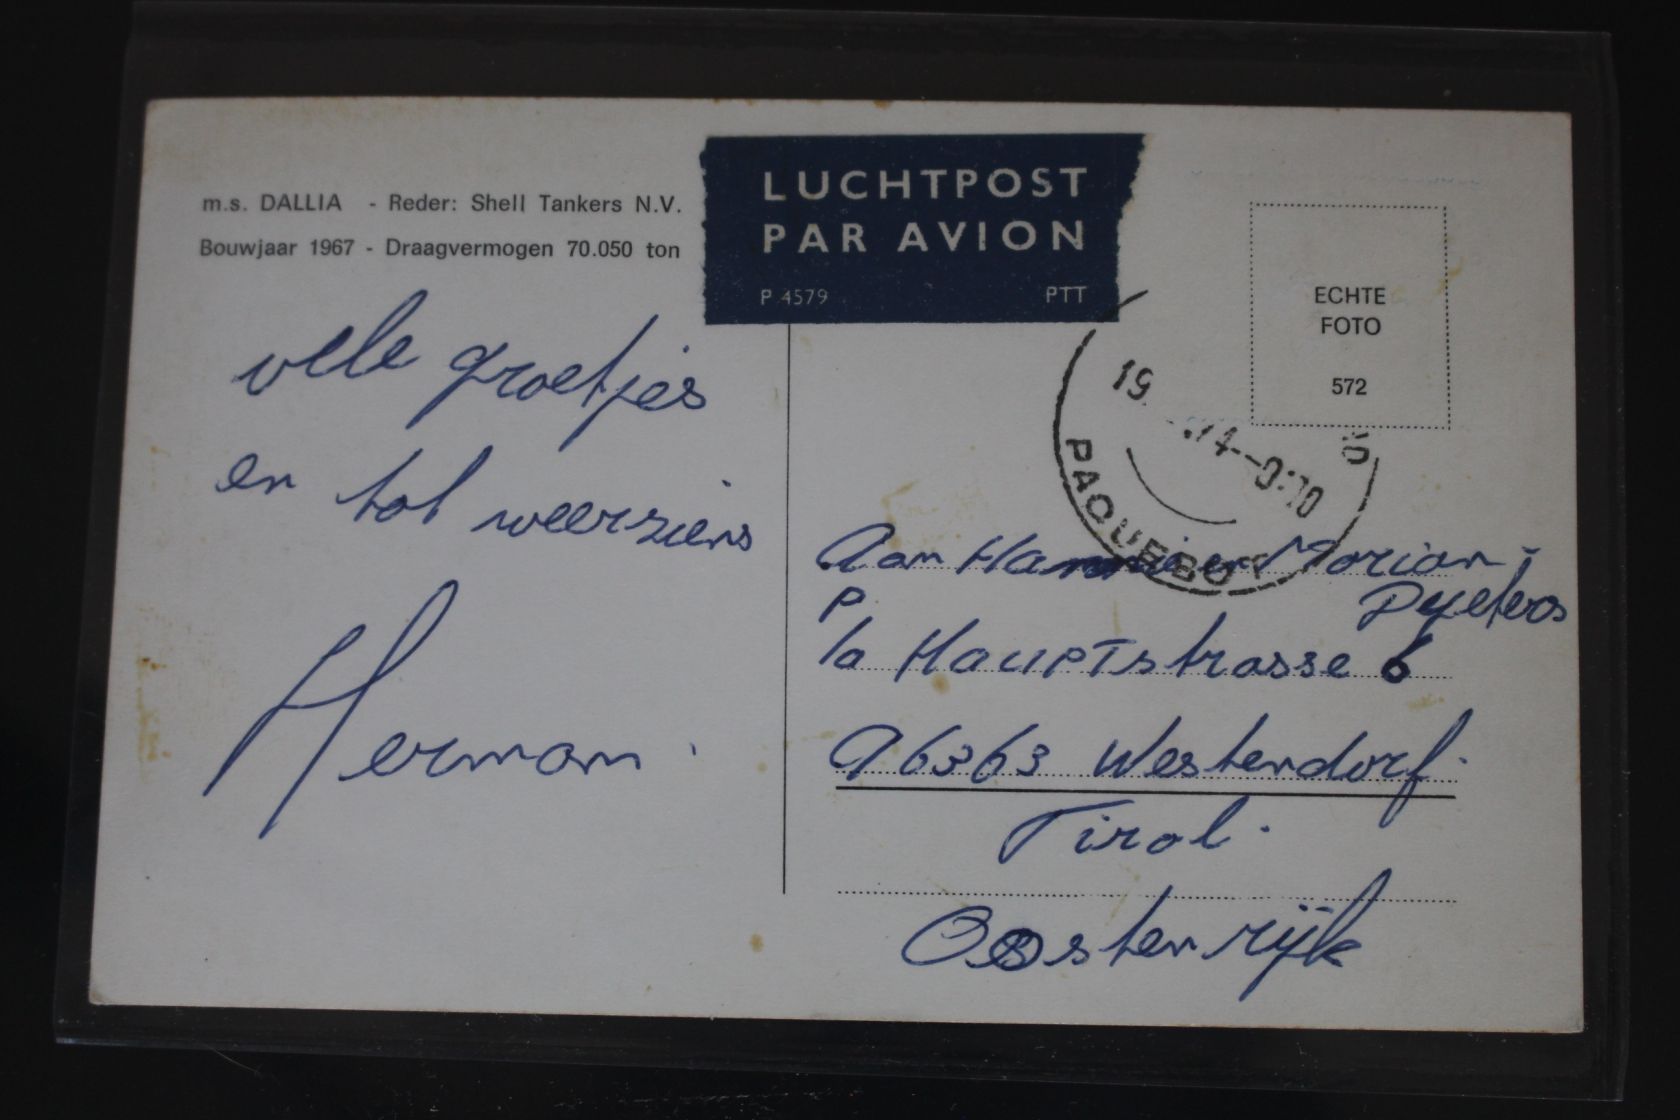 m.s. DALLIA - Reder: Shell Tankers N.V.
Bouwjaar 1967 - Draagvermogen 70.050 ton
LUCHTPOST
PAR AVION
P 4579 PTT
ECHTE
FOTO
572
PAQUEBOT
vele groetjes
en tot weerziens
Herman.
Aan Hannie en Marian
P
/a Hauptstrasse 6
A6363 Westendorf.
Tirol.
Oostenrijk